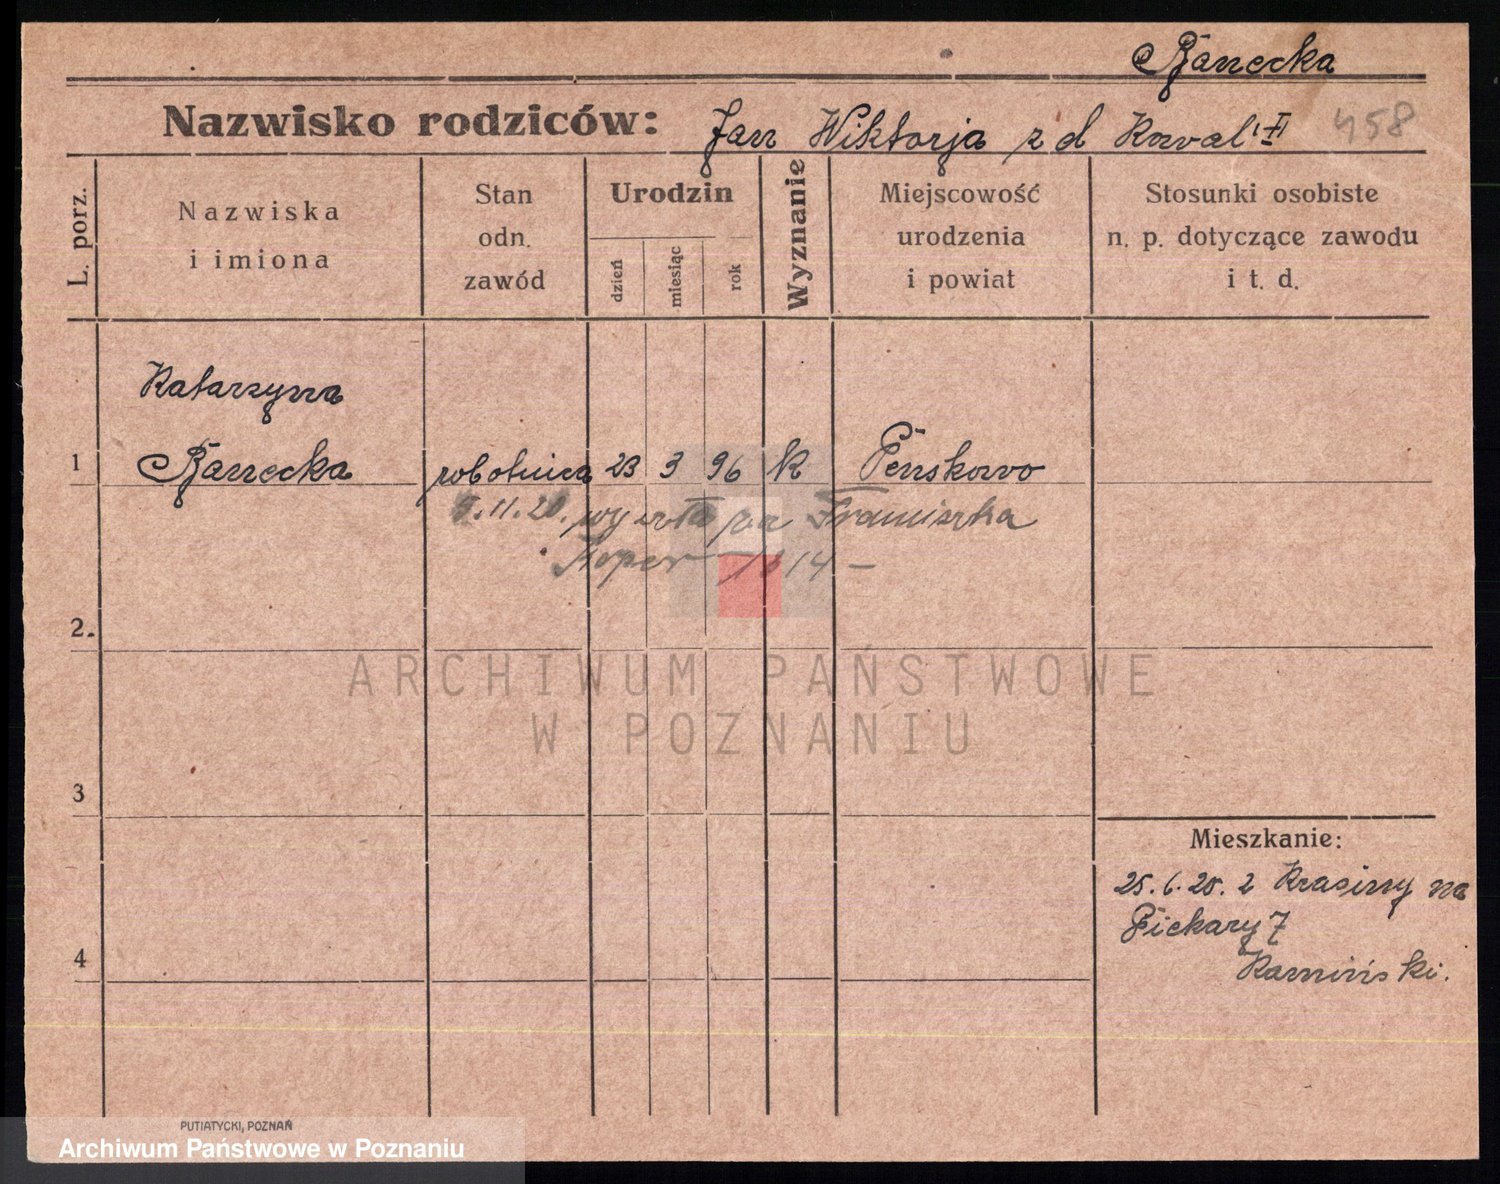 Banecka
Nazwisko rodziców: Jan Wiktorja z d Kowal 458
L. porz.
Nazwiska
i imiona
Stan
odn.
zawód
Urodzin
dzień
miesiąc
rok
Wyznanie
Miejscowość
urodzenia
i powiat
Stosunki osobiste
n. p. dotyczące zawodu
i t. d.
Katarzyna
1 Banecka robotnica 23 3 96 K Penskowo
.11.20. Franciszka
14 –
2.
ARCHIWUM PAŃSTWOWE
W POZNANIU
3
Mieszkanie:
25.6.20. z Krasiny na
Piekary 7
4 Kamiński.
PUTIATYCKI, POZNAŃ
Archiwum Państwowe w Poznaniu